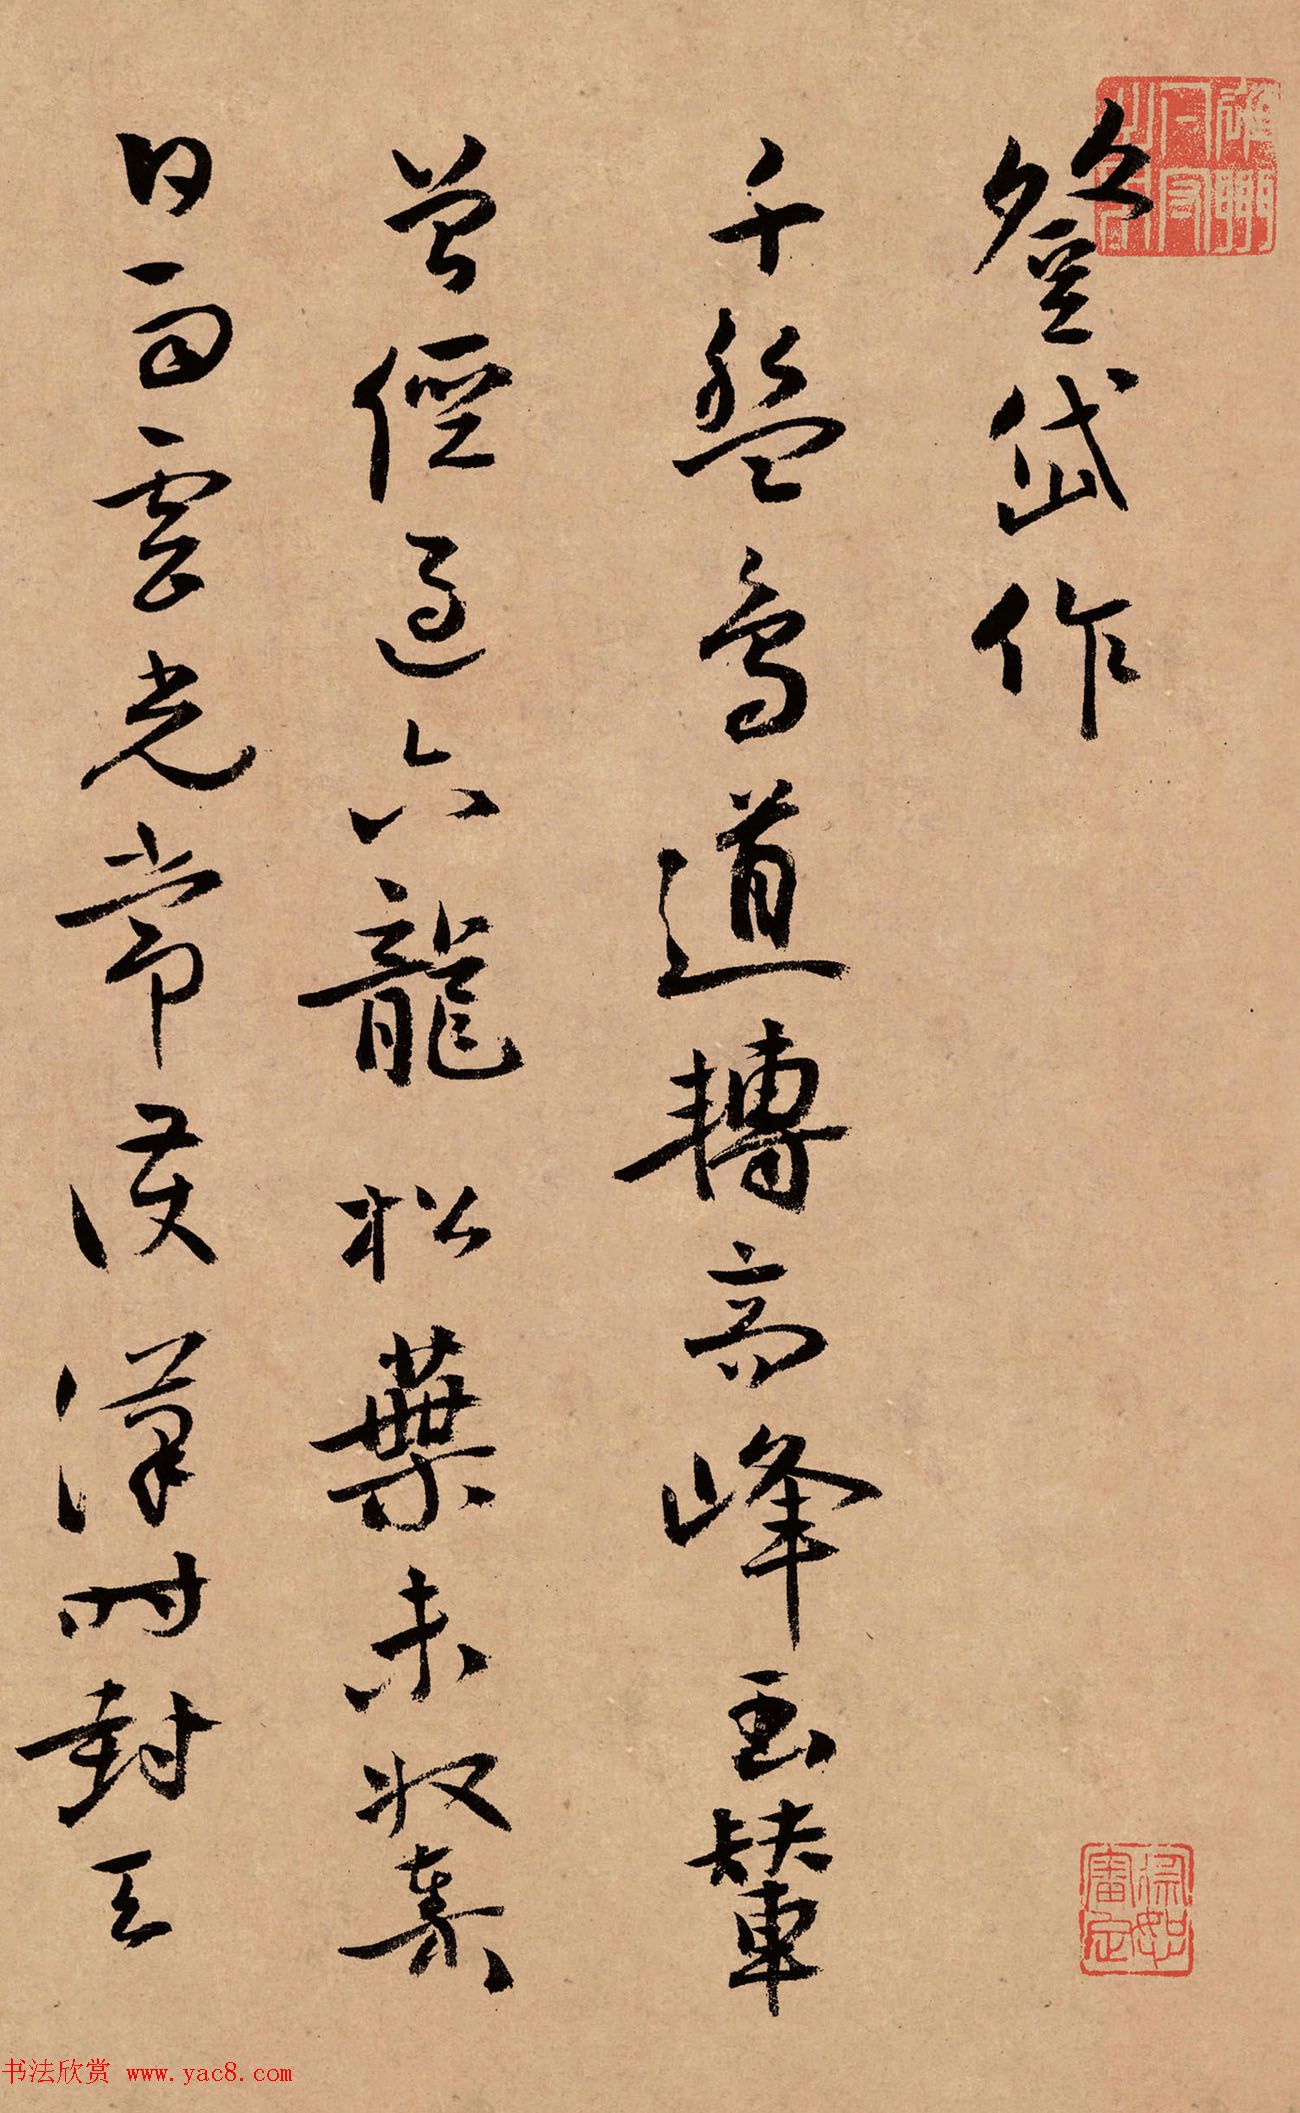 登岱作
千盤鳥道轉高峰玉輦
曾經過六龍松葉未收秦
日雨雲光常護漢時封天
书法欣赏 www.yac8.com